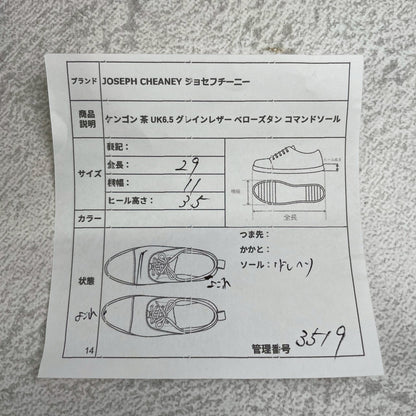 ブランド JOSEPH CHEANEY ジョセフチーニー
商品説明 ケンゴン 茶 UK6.5 グレインレザー ベローズタン コマンドソール
サイズ
表記：
全長： 29
横幅： 11
ヒール高さ： 3.5
ヒール高さ
横幅
全長
カラー
状態
つま先：
かかと：
ソール：
よごれ
よごれ
管理番号 3519
14